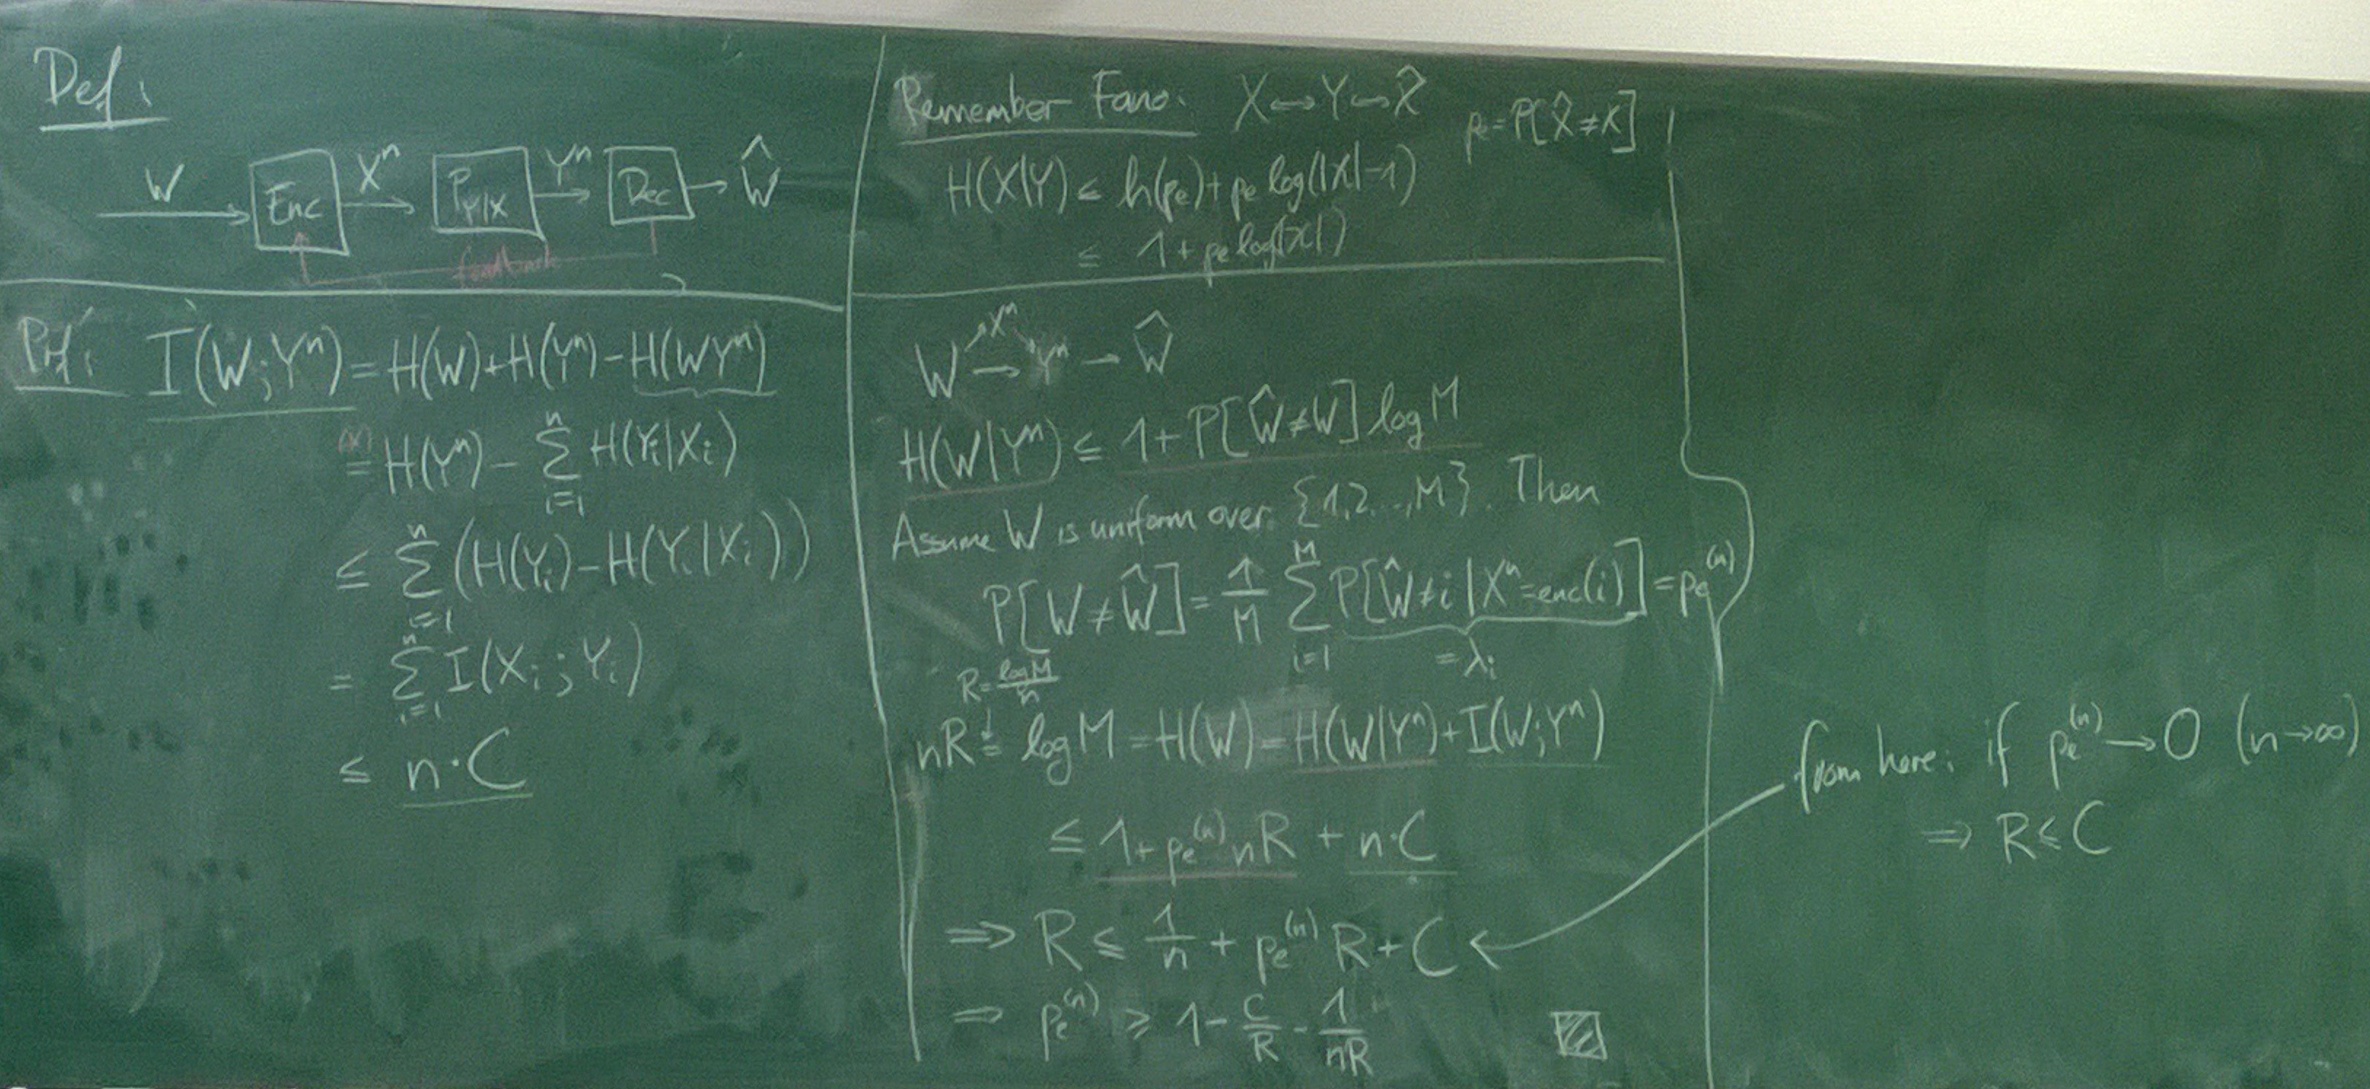 Def:
W → Enc Xⁿ → P_{Y|X} Yⁿ → Dec → Ŵ
feedback
Prf: I(W;Yⁿ) = H(W)+H(Yⁿ)-H(WYⁿ)
= H(Yⁿ) - ∑_{i=1}^{n} H(Yᵢ|Xᵢ)
≤ ∑_{i=1}^{n} (H(Yᵢ)-H(Yᵢ|Xᵢ))
= ∑_{i=1}^{n} I(Xᵢ;Yᵢ)
≤ n·C
Remember Fano: X↔Y↔X̂ pₑ=P[X̂≠X]
H(X|Y) ≤ h(pₑ)+pₑ log(|X|-1)
≤ 1+pₑ log(|X|)
W → Xⁿ → Yⁿ → Ŵ
H(W|Yⁿ) ≤ 1+P[Ŵ≠W] log M
Assume W is uniform over {1,2...,M}. Then
P[W≠Ŵ] = 1/M ∑_{i=1}^{M} P[Ŵ≠i|Xⁿ=enc(i)] = pₑ⁽ⁿ⁾
=λᵢ
R=log M/n
nR = log M = H(W) = H(W|Yⁿ)+I(W;Yⁿ)
≤ 1+pₑ⁽ⁿ⁾nR + n·C
⇒ R ≤ 1/n + pₑ⁽ⁿ⁾ R+C
⇒ pₑ⁽ⁿ⁾ ≥ 1 - C/R - 1/nR
from here: if pₑ⁽ⁿ⁾→0 (n→∞)
⇒ R≤C